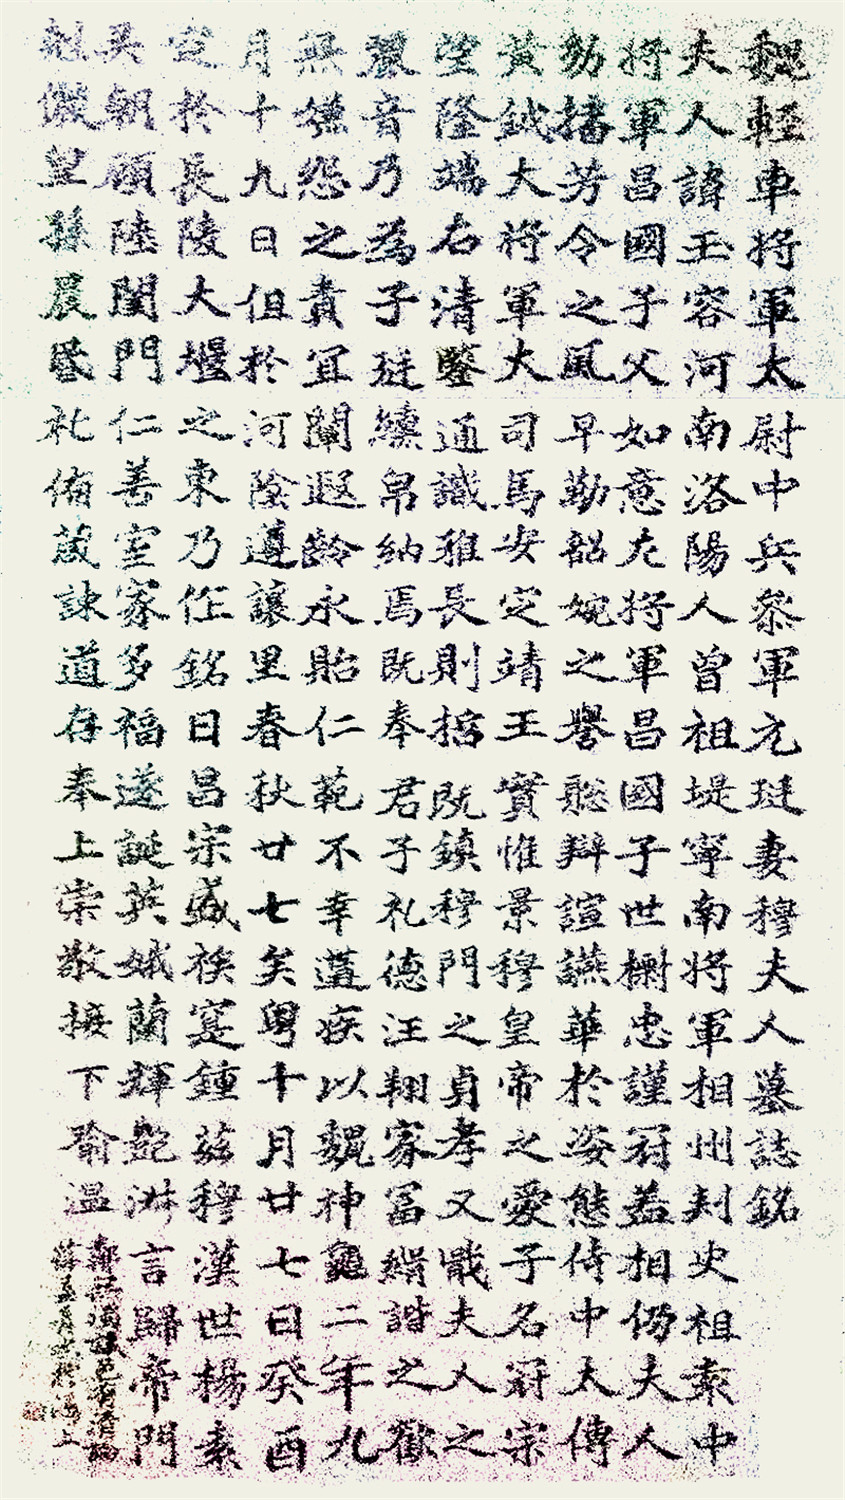 魏輕車將軍太尉中兵參軍元珽妻穆夫人墓誌銘
夫人諱玉容河南洛陽人曾祖堤寧南將軍相州刾史祖袁中
將軍昌國子父如意左將軍昌國子世樹忠謹冠蓋相仍夫人
幼播芳令之風早勤韶婉之譽聡辯諠讌華於姿態侍中太傅
黃鉞大將軍大司馬安定靖王實惟景穆皇帝之愛子名冠宗
望隆端右清鑒通識雅長則撿既鎮穆門之貞孝又戢夫人之
麗音乃為子珽纁帛納焉既奉君子礼德汪翔家冨緝諧之歡
無嫌怨之責宜闡遐齡永貽仁範不幸遘疾以魏神龜二年九
月十九日徂於河陰遵讓里春秋廿七矣粤十月廿七日癸酉
窆於長陵大堰之東乃作銘曰昌宗盛族寔鍾茲穆漢世楊袁
吳朝顧陸閨門仁善室家多福遂誕英娥蘭輝艷淋言歸帝門
剋儷皇孫晨昏礼侑葳諫道存奉上崇敬接下瑜溫